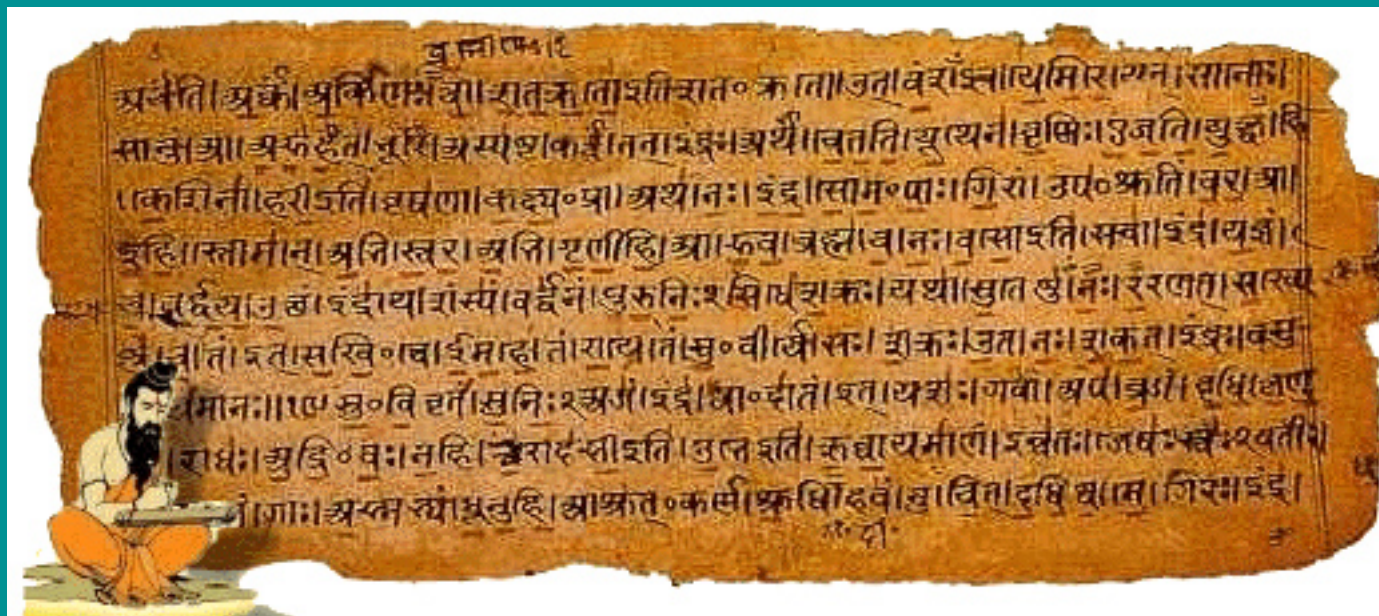 अर्चंति। अर्कं। अर्किणः। शतक्रतो इति शत॰क्रतो। उत्। वंशंऽइव। येमिरे। यत्। सानोः।
सानुं। आ। अरुहत्। भूरि। अस्पष्ट। कर्त्वं। तत्। इंद्रः। अर्थं। चेतति। यूथेन। वृष्णिः। एजति। युक्ष्व। हि
।। केशिना। हरी इति। वृषणा। कक्ष्य॰प्रा। अथ। नः। इंद्र। सोम॰पाः। गिरां। उप॰श्रुतिं। चर। आ।
इहि। स्तोमान्। अभि। स्वर। अभि। गृणीहि। आ। रुव। ब्रह्म। च। नः। वसो इति। सचा। इंद्र। यज्ञं।
च। वर्द्धय। उक्थं। इंद्राय। शंस्यं। वर्द्धनं। पुरुनिःऽसिधे। शक्रः। यथा। सुतेषु। नः। ररणत्। सख्ये
च। तं। इत्। सखि॰त्वे। ईमहे। तं। राये। तं। सु॰वीर्ये। सः। शक्रः। उत। नः। शकत्। इंद्रः। वसु
मानः।। सु॰विवृतं। सुनिःऽअजं। इंद्र। त्वा॰दातं। इत्। यशः। गवां। अप। व्रजं। वृधि।
राधः। अद्रि॰वः। नहि। रोदसी इति। उभे इति। ऋघायमाणं। इन्वतः। जेषः। स्वःऽवतीः।
गाः। अस्मभ्यं। धूनुहि। आश्रुत्॰कर्ण। श्रुधि। हवं। नु। चित्। दधिष्व। मे। गिरः। इंद्र।